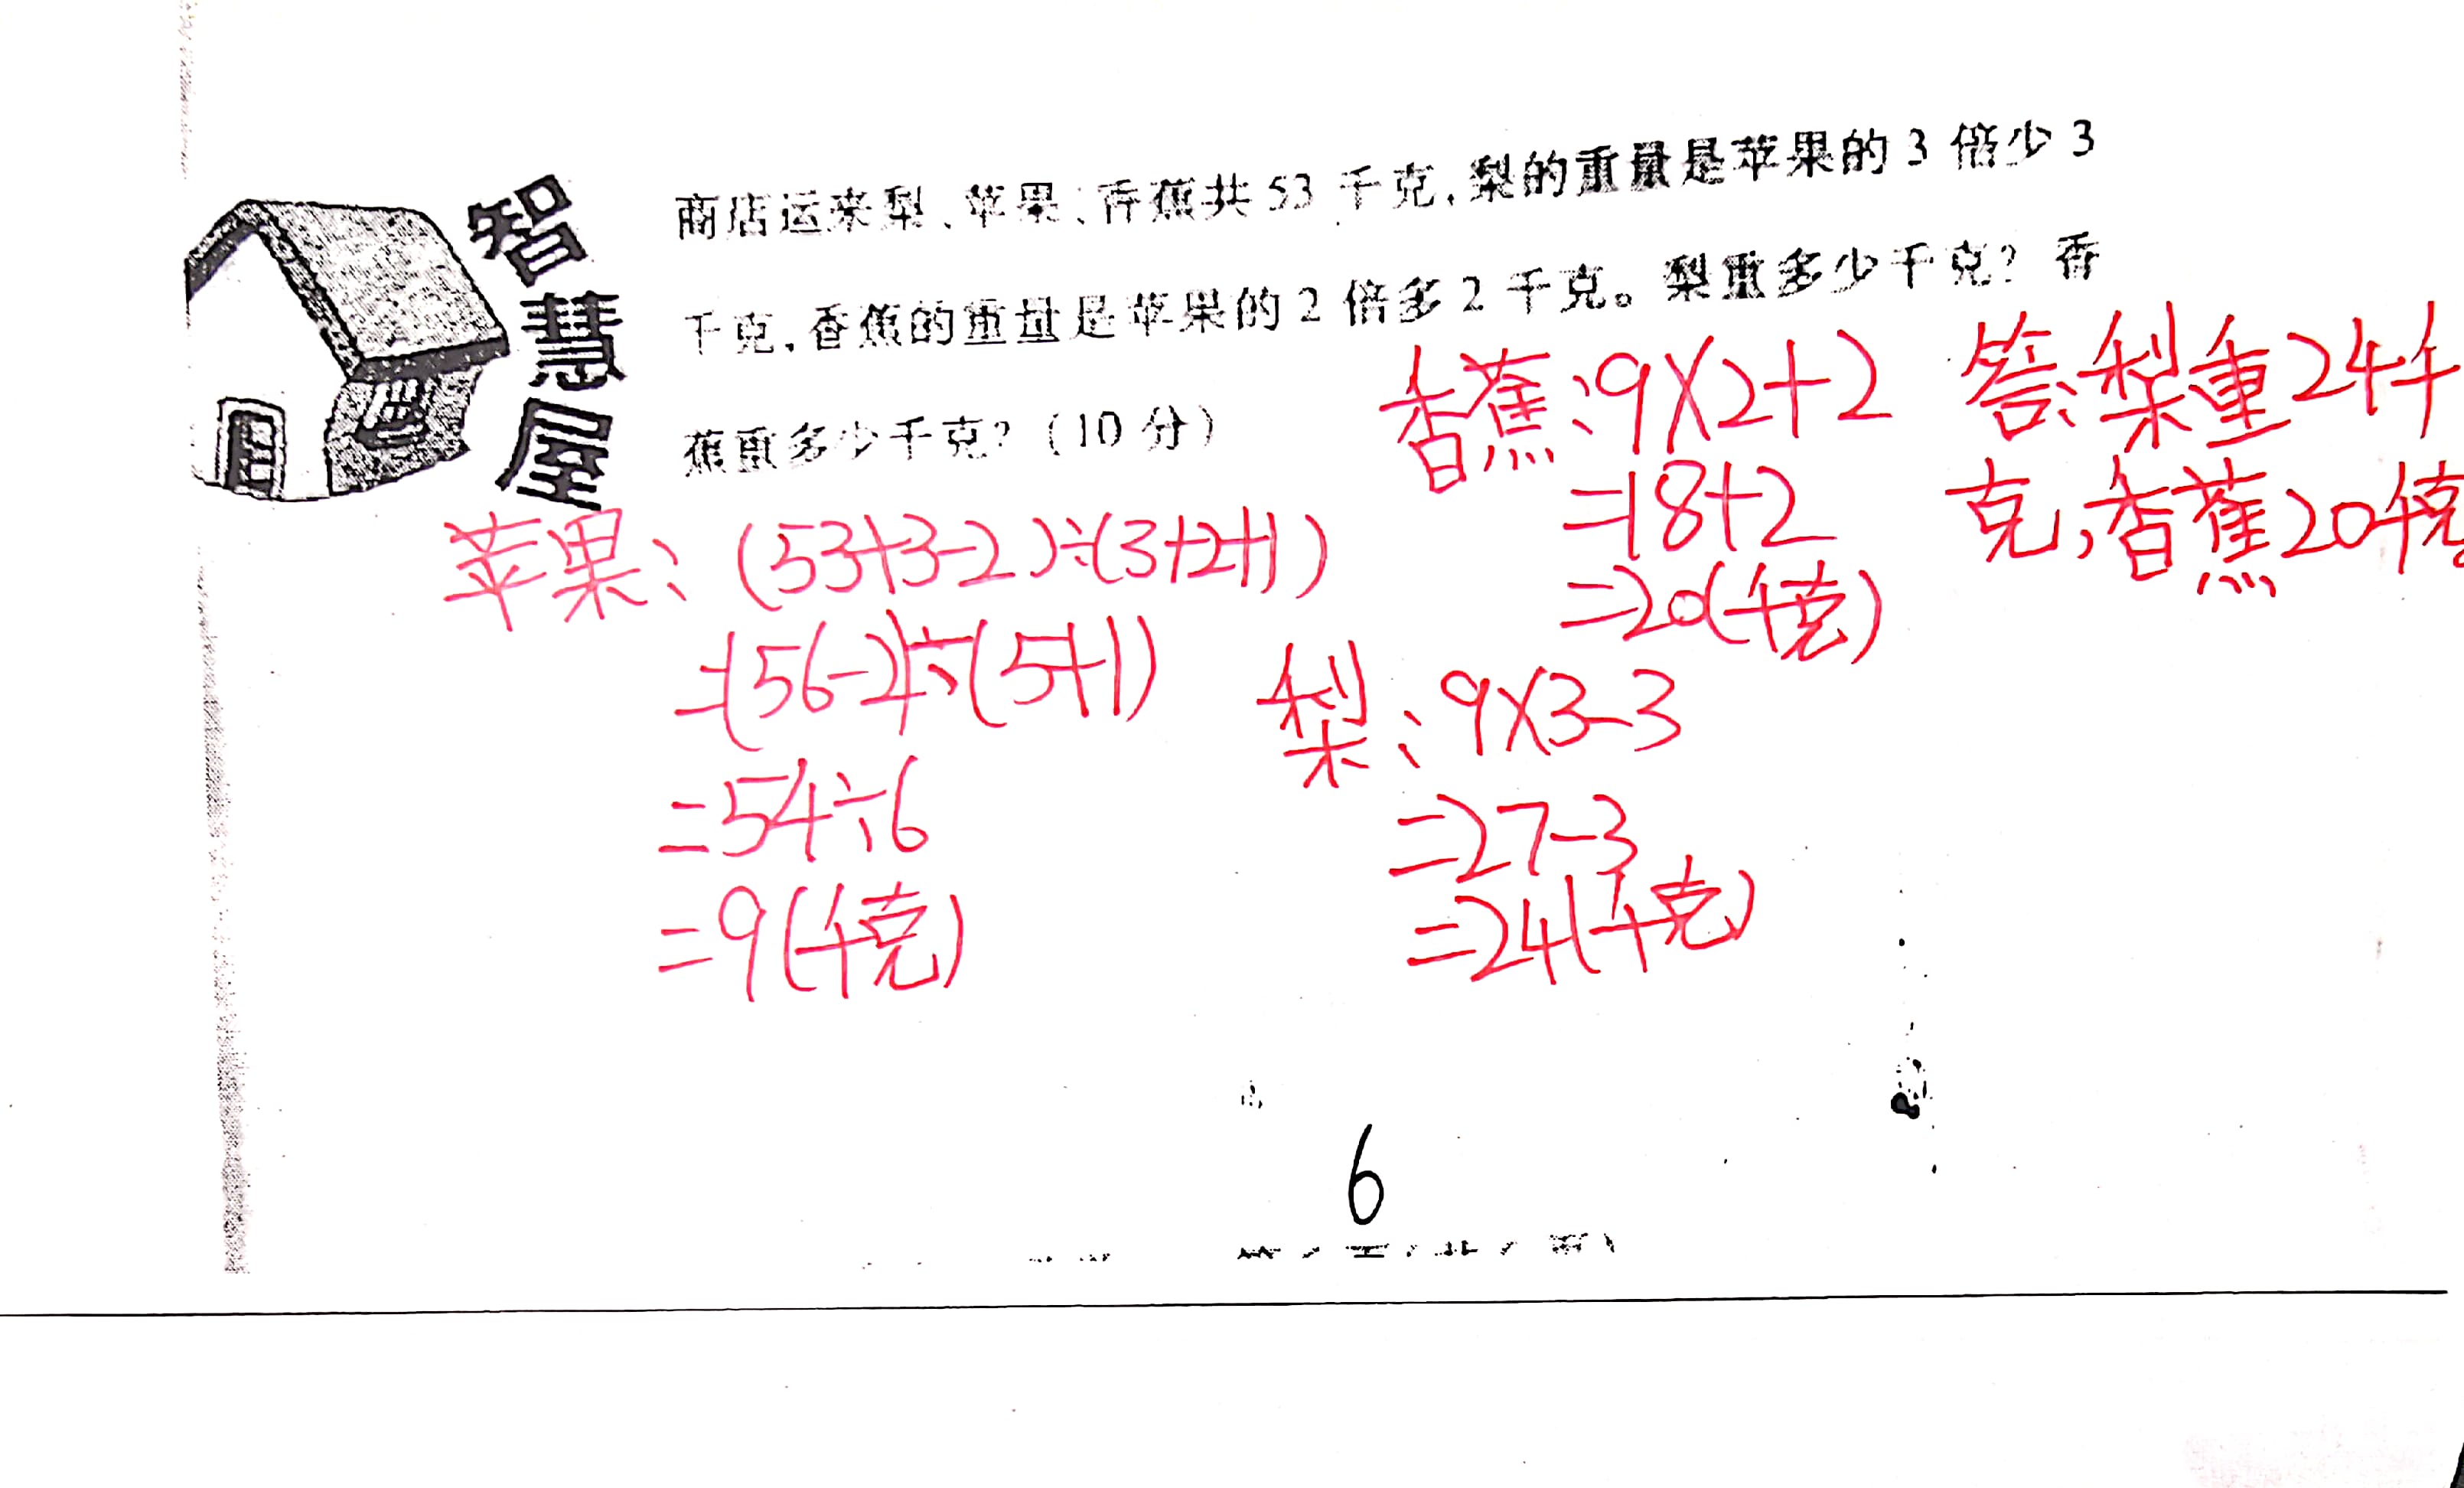 智慧屋
商店运来梨、苹果、香蕉共53千克,梨的重量是苹果的3倍少3
千克,香蕉的重量是苹果的2倍多2千克。梨重多少千克?香
蕉重多少千克?(10分)
苹果:(53+3-2)÷(3+2+1)
=(56-2)÷(5+1)
=54÷6
=9(千克)
香蕉:9×2+2
=18+2
=20(千克)
梨:9×3-3
=27-3
=24(千克)
答:梨重24千
克,香蕉20千克。
6